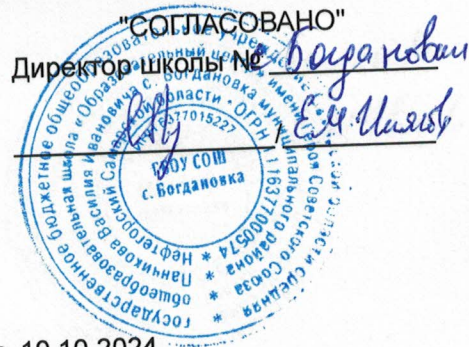 "СОГЛАСОВАНО"
Директор школы № Богдановки
/
Государственное бюджетное общеобразовательное учреждение Самарской области средняя
общеобразовательная школа «Образовательный центр» имени Героя Советского Союза
Панчикова Василия Ивановича с. Богдановка муниципального района
Нефтегорский Самарской области * ОГРН 1116377000574 *
6377015227
ГБОУ СОШ
с. Богдановка
10.10.2024